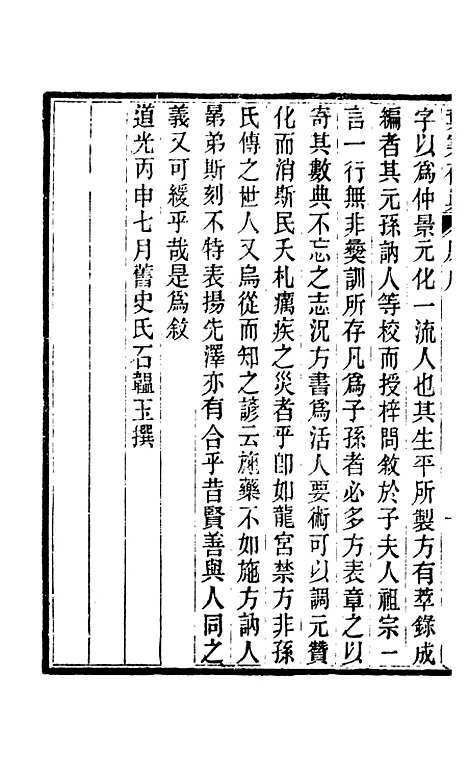 字以爲仲景元化一流人也其生平所製方有萃錄成
編者其元孫訥人等校而授梓問敘於予夫人祖宗一
言一行無非彞訓所存凡爲子孫者必多方表章之以
寄其數典不忘之志況方書爲活人要術可以調元贊
化而消斯民夭札癘疾之災者乎卽如龍宮禁方非孫
氏傳之世人又烏從而知之諺云施藥不如施方訥人
晜弟斯刻不特表揚先澤亦有合乎昔賢善與人同之
義又可緩乎哉是爲敘
道光丙申七月舊史氏石韞玉撰